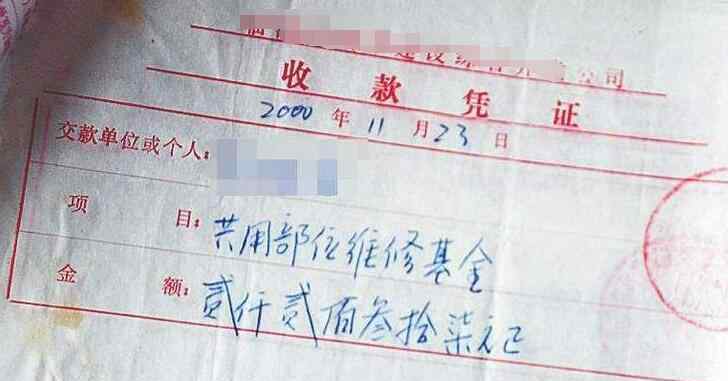 公司
收款凭证
2000年11月23日
交款单位或个人：
项目：共用部位维修基金
金额：贰仟贰佰叁拾柒元正